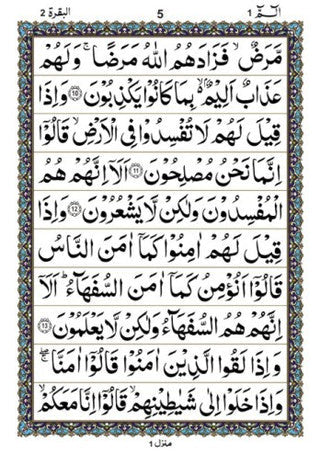 الٓمّٓ ۱ 5 البقرة 2
مَّرَضٌ ۙ فَزَادَهُمُ اللّٰهُ مَرَضًا ۚ وَلَهُمْ
عَذَابٌ اَلِيْمٌۢ ۙ۬ بِمَا كَانُوْا يَكْذِبُوْنَ ⑩ وَاِذَا
قِيْلَ لَهُمْ لَا تُفْسِدُوْا فِى الْاَرْضِ ۙ قَالُوْٓا
اِنَّمَا نَحْنُ مُصْلِحُوْنَ ⑪ اَلَآ اِنَّهُمْ هُمُ
الْمُفْسِدُوْنَ وَلٰكِنْ لَّا يَشْعُرُوْنَ ⑫ وَاِذَا
قِيْلَ لَهُمْ اٰمِنُوْا كَمَآ اٰمَنَ النَّاسُ
قَالُوْٓا اَنُؤْمِنُ كَمَآ اٰمَنَ السُّفَهَآءُ ؕ اَلَآ
اِنَّهُمْ هُمُ السُّفَهَآءُ وَلٰكِنْ لَّا يَعْلَمُوْنَ ⑬
وَ اِذَا لَقُوا الَّذِيْنَ اٰمَنُوْا قَالُوْٓا اٰمَنَّا ۖۚ
وَاِذَا خَلَوْا اِلٰى شَيٰطِيْنِهِمْ ۙ قَالُوْٓا اِنَّا مَعَكُمْ ۙ
منزل ۱